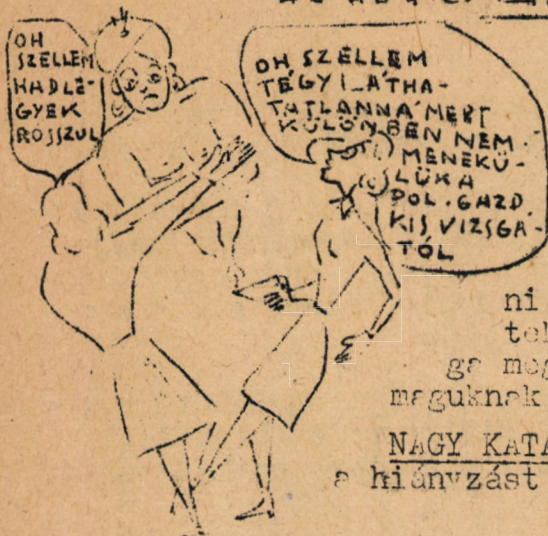 OH
SZELLEM
HADLE-
GYEK
ROSSZUL
OH SZELLEM
TÉGY LÁTHA-
TATLANNÁ MERT
KÜLÖNBEN NEM
MENEKÜ-
LÜK A
POL. GAZD
KIS VIZSGÁ-
TÓL
ni
tel
ga meg
maguknak
NAGY KATA
a hiányzást